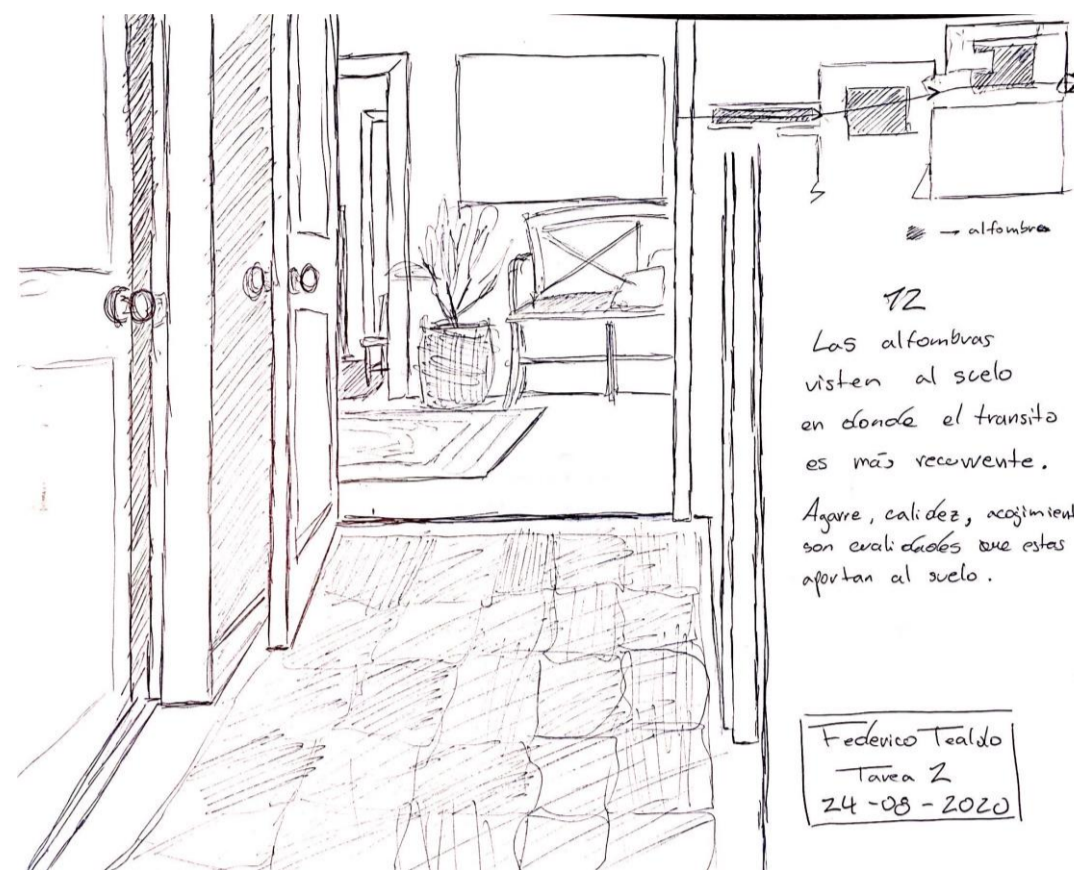 → alfombras
12
Las alfombras
visten al suelo
en donde el transito
es más recurrente.
Agarre, calidez, acojimient
son cualidades que estas
aportan al suelo.
Federico Tealdo
Tarea 2
24-08-2020